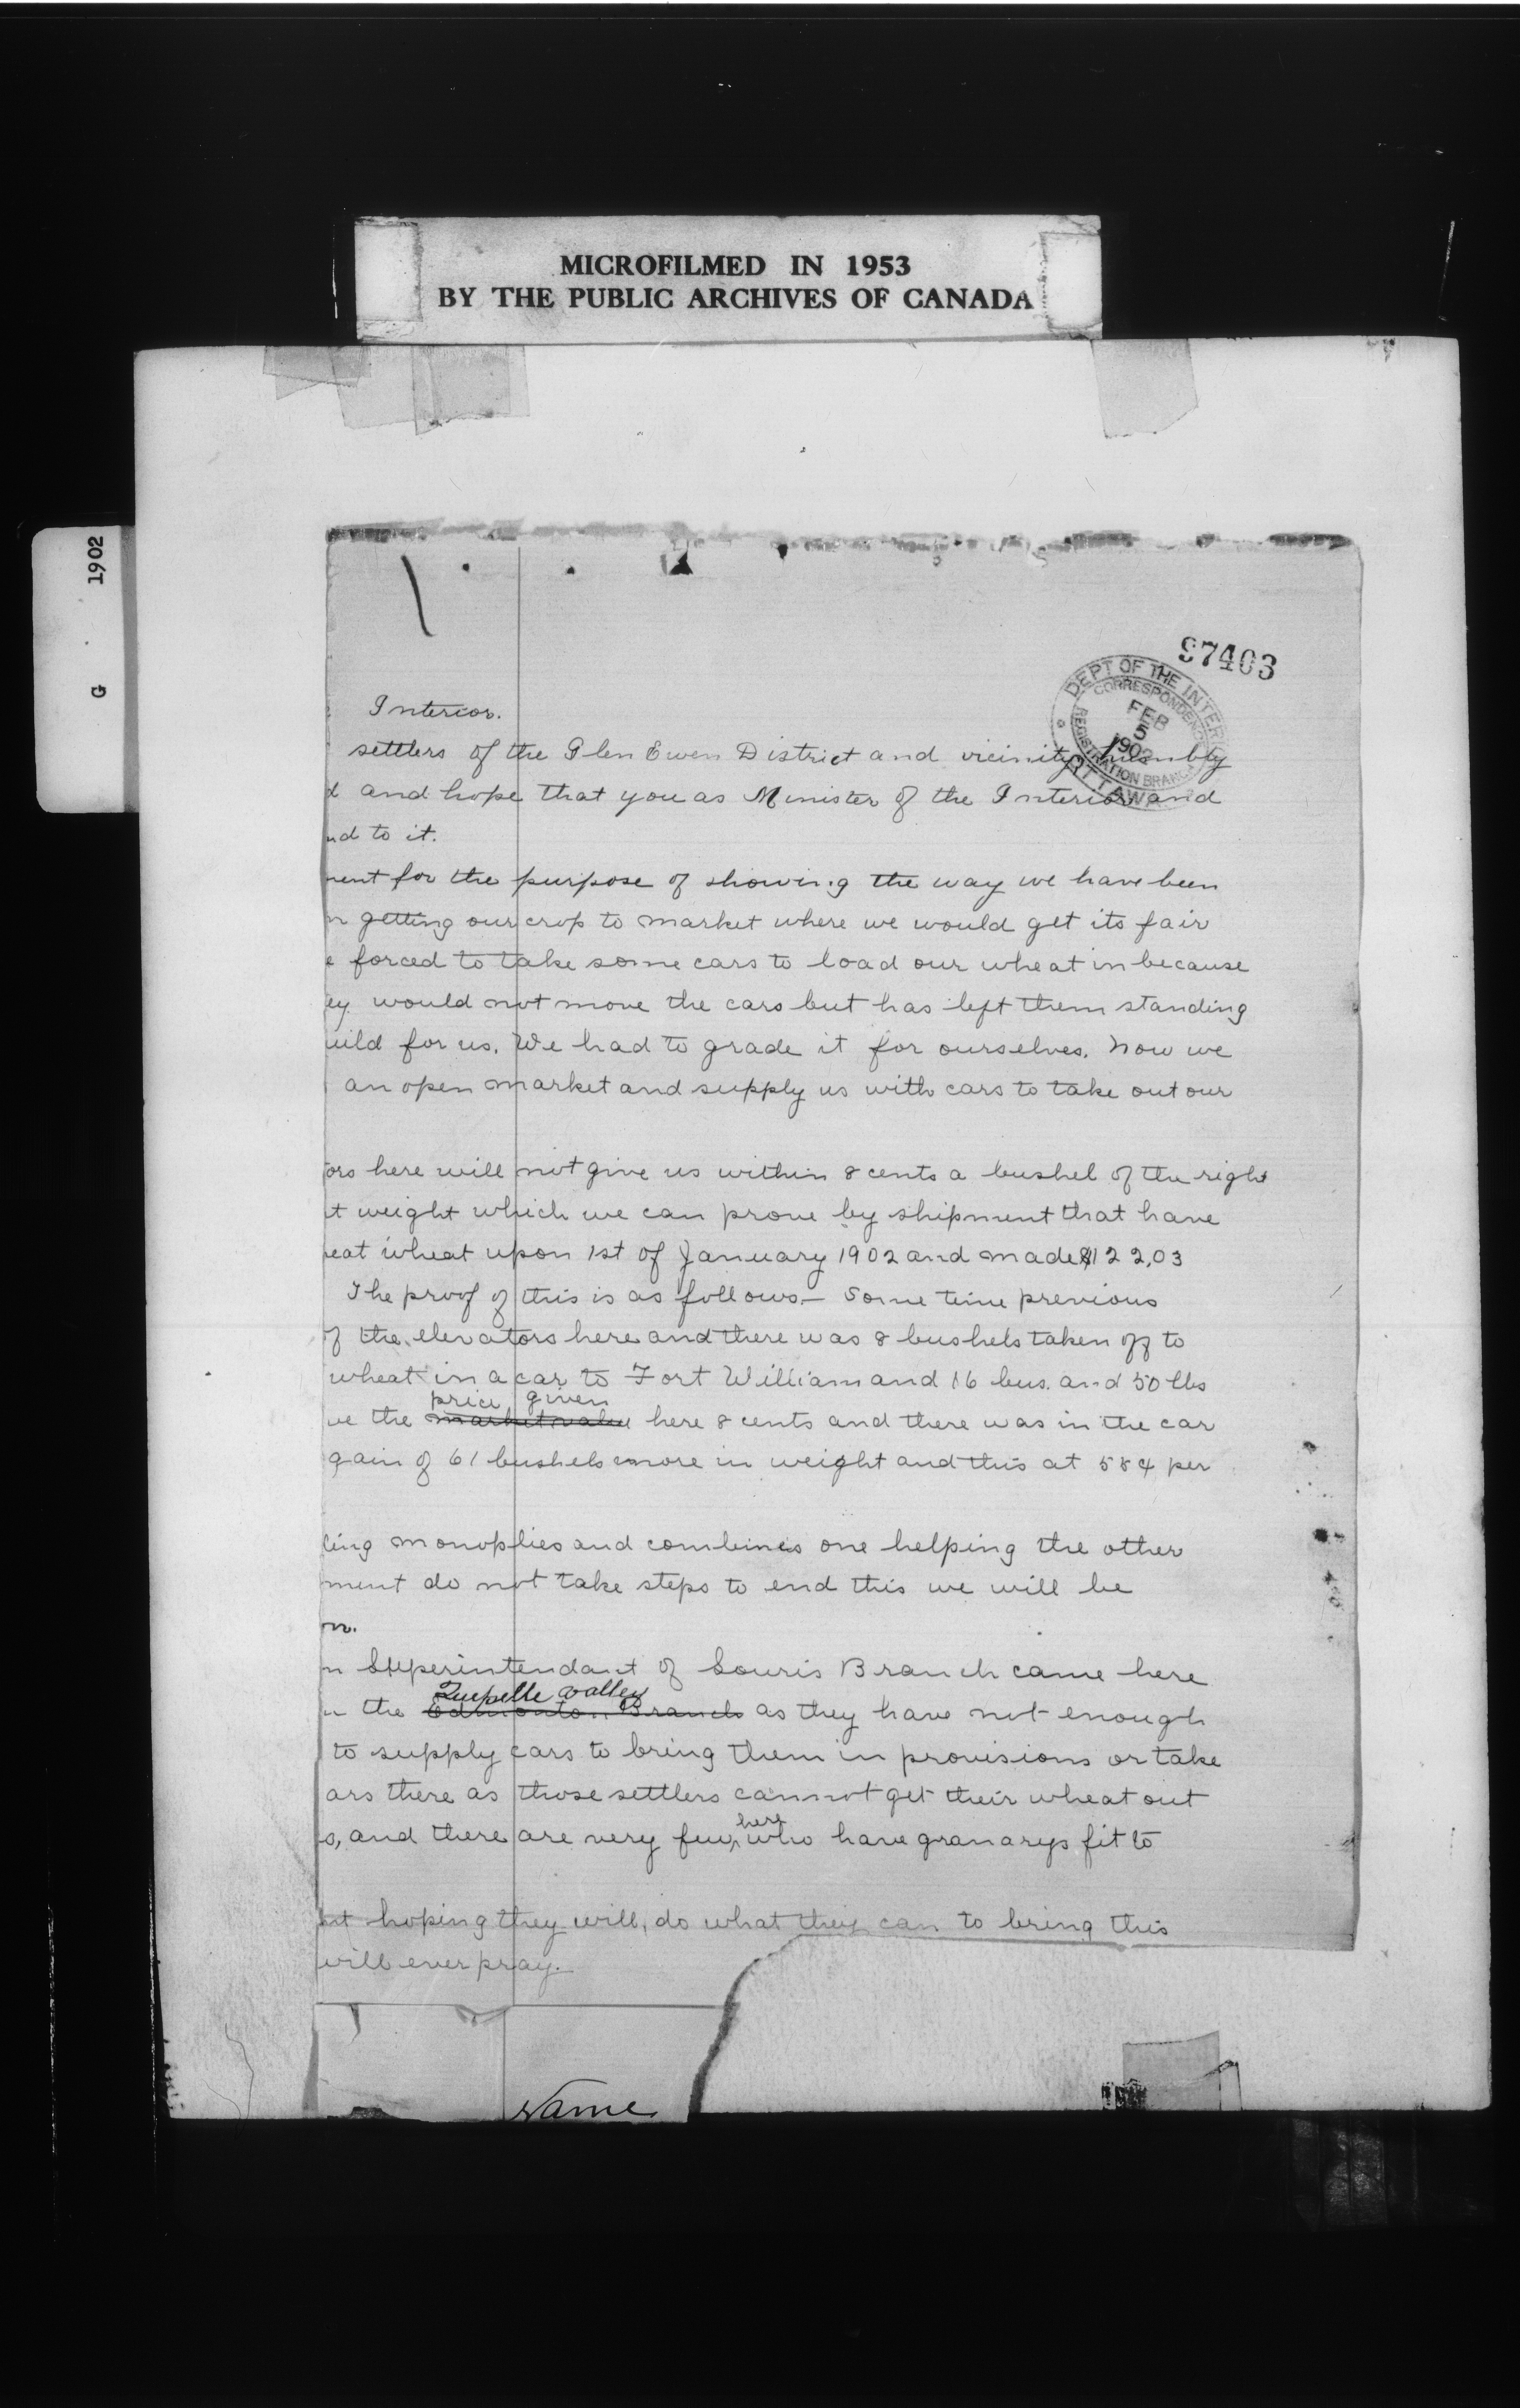 MICROFILMED IN 1953
BY THE PUBLIC ARCHIVES OF CANADA
G 1902
97403
DEPT OF THE INTERIOR
CORRESPONDENCE
FEB
5
1902
REGISTRATION BRANCH
OTTAWA
Interior.
settlers of the Glen Ewen District and vicinity humbly
d and hope that you as Minister of the Interior and
nd to it.
ment for the purpose of showing the way we have been
n getting our crop to market where we would get its fair
e forced to take some cars to load our wheat in because
ey would not move the cars but has left them standing
uild for us. We had to grade it for ourselves. Now we
an open market and supply us with cars to take out our
ors here will not give us within 8 cents a bushel of the right
t weight which we can prove by shipment that have
eat wheat upon 1st of January 1902 and made $122.03
The proof of this is as follows.— Some time previous
of the elevators here and there was 8 bushels taken off to
wheat in a car to Fort William and 16 bus. and 50 lbs
price given
ve the market value here 8 cents and there was in the car
gain of 61 bushels more in weight and this at 58¢ per
ling monoplies and combines one helping the other
ment do not take steps to end this we will be
on.
n Superintendant of Souris Branch came here
Qu'pelle valley
n the Edmonton Branch as they have not enough
to supply cars to bring them in provisions or take
ars there as those settlers cannot get their wheat out
here
s, and there are very few, who have granarys fit to
nt hoping they will, do what they can to bring this
will ever pray.
Name